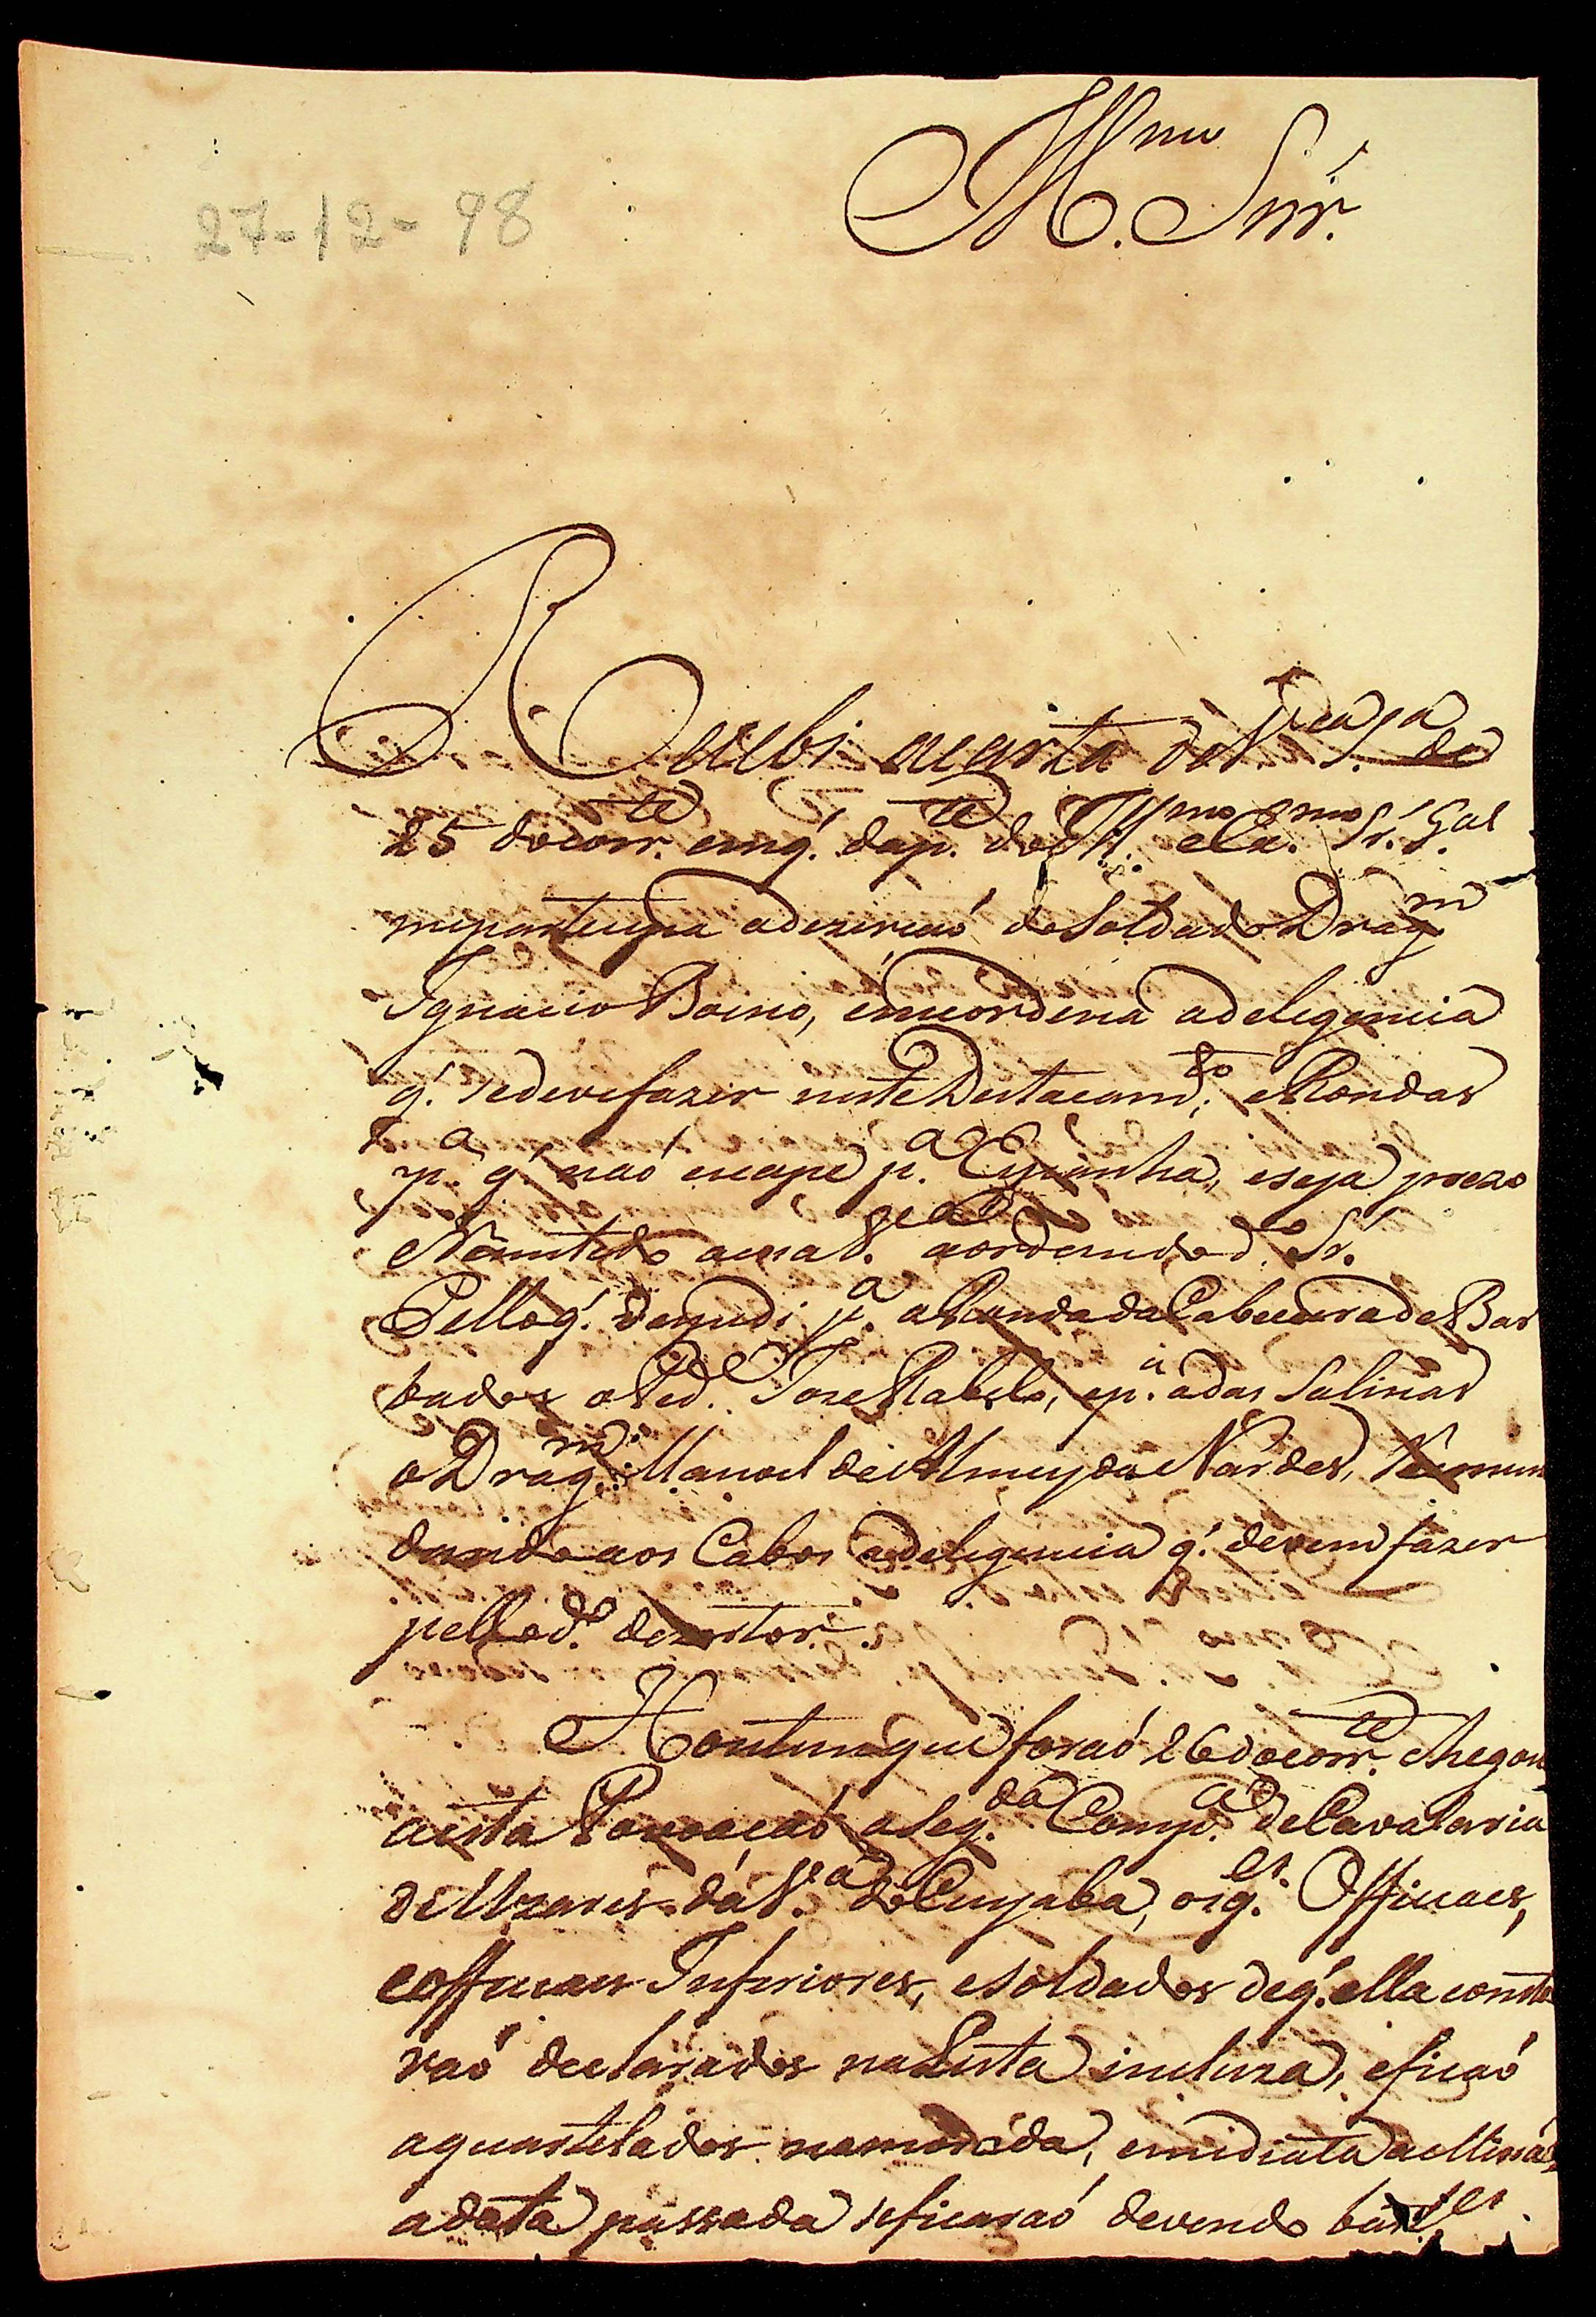 Illmo Snr.
27-12-98
Recebi a carta de V.ca S.a de
25 do corr.te em q. da p.te do Ill.mo e Ex.mo Sr. G.al
me participa a dezerçaõ do Soldado Drag.m
Ignacio Bueno, e me ordena a deligencia
q. se deve fazer neste Destacam.to e Rondas
p.a q. naõ escape p.a Espanha, e seja prezo
e Remetido a essa V.a a ordem do d.o Sr.
Pello q. expedi p.a a Ronda da Cabeceira de Bar
bados o Ped. Joze Rabelo, e p.a a das Salinas
o Drag.m Manoel de Almeyda Nardes,
dando aos Cabos a deligencia q. devem fazer
pello d.o dezertor.
Hontem que foraõ 26 do corr.te chegou
a esta Povoaçaõ a Seg.da Comp.a de Cavalaria
de Uzares da V.a do Cuyaba, os q.es Officiaes,
e officiaes Inferiores, e soldados de q. ella consta
vaõ declarados na Lista incluza, e ficaõ
aquartelados na morada, emidiata a
a data passada se ficaraõ devendo